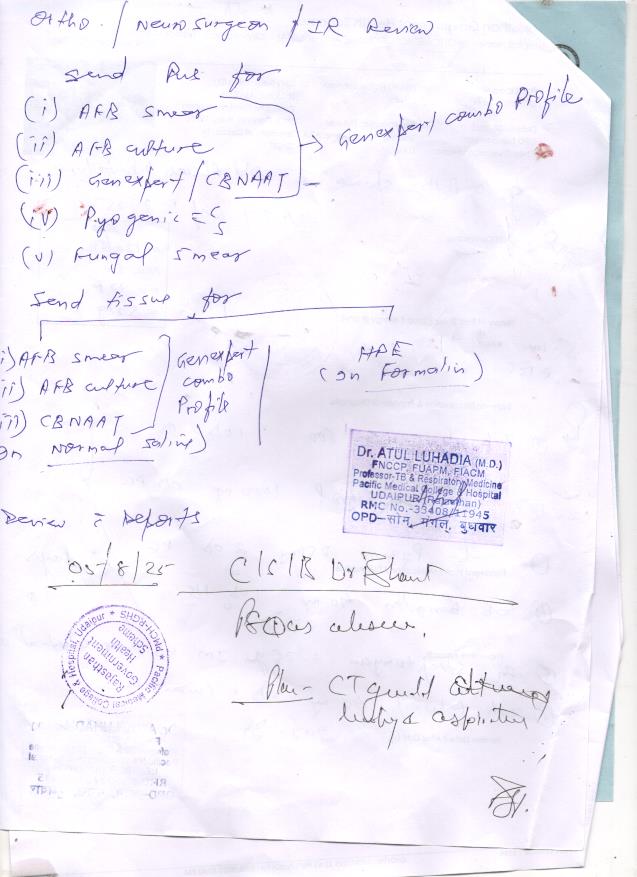 Ortho. / Neurosurgeon / IR Review
Send Pus for
(i) AFB smear
(ii) AFB culture
(iii) Genexpert / CBNAAT
→ Genexpert / combo Profile
(iv) Pyogenic c̄ C/S
(v) Fungal smear
Send tissue for
i) AFB smear
ii) AFB culture
iii) CBNAAT
Genexpert
combo
Profile
In Normal Saline)
HPE
(In Formalin)
Dr. ATUL LUHADIA (M.D.)
FNCCP, FUAPM, FIACM
Professor-TB & Respiratory Medicine
Pacific Medical College & Hospital
UDAIPUR (Rajasthan)
RMC No.-33408/11945
OPD-सोम, मंगल, बुधवार
Review c̄ Reports
05/8/25
C/S/B Dr
Pacific Medical College & Hospital, Udaipur * PMCH-RGHS *
Rajasthan
Government
Health
Scheme
Psoas abscess.
Plan - CT guided
biopsy & aspiration